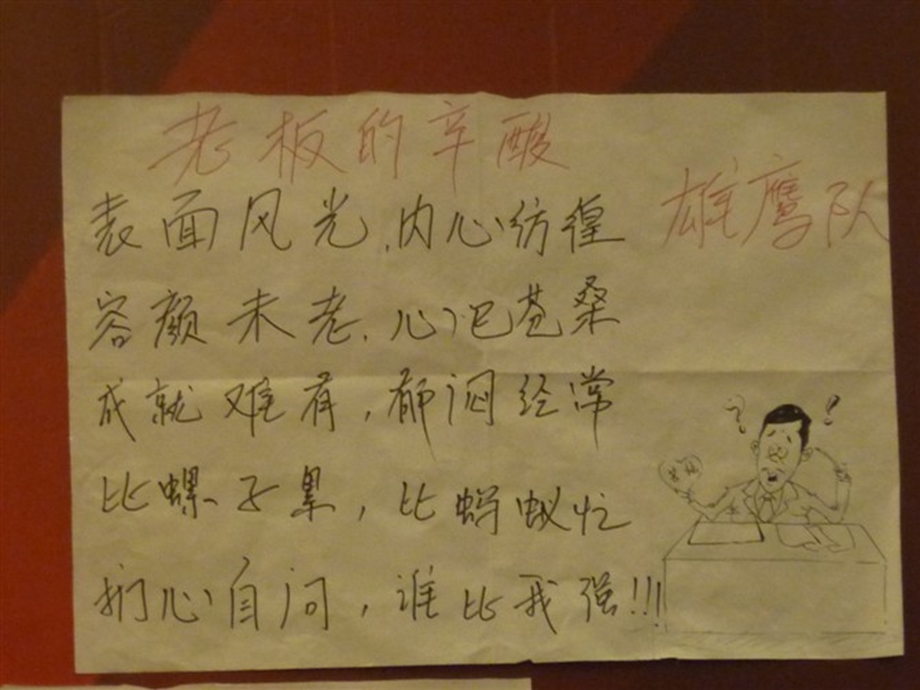 老板的辛酸
雄鹰队
表面风光,内心彷徨
容颜未老,心已苍桑
成就难有,郁闷经常
比螺子累,比蚂蚁忙
扪心自问,谁比我强!!!
? ?